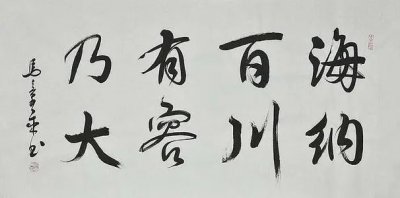 海纳
百川
有容
乃大